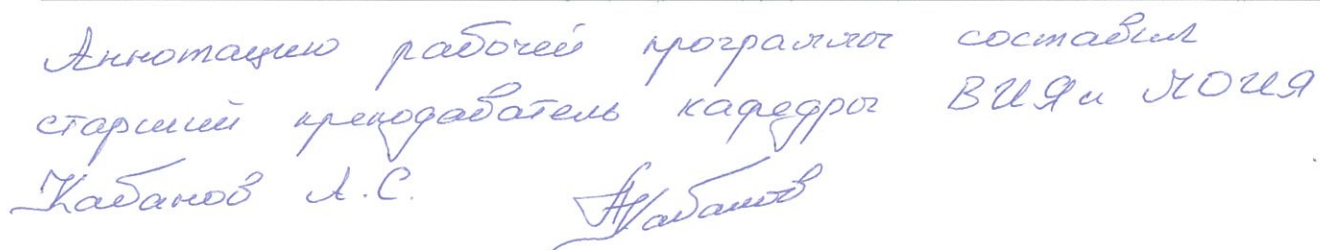 Аннотацию рабочей программы составил
старший преподаватель кафедры ВИЯ и МОИЯ
Кабанов А.С. АКабанов